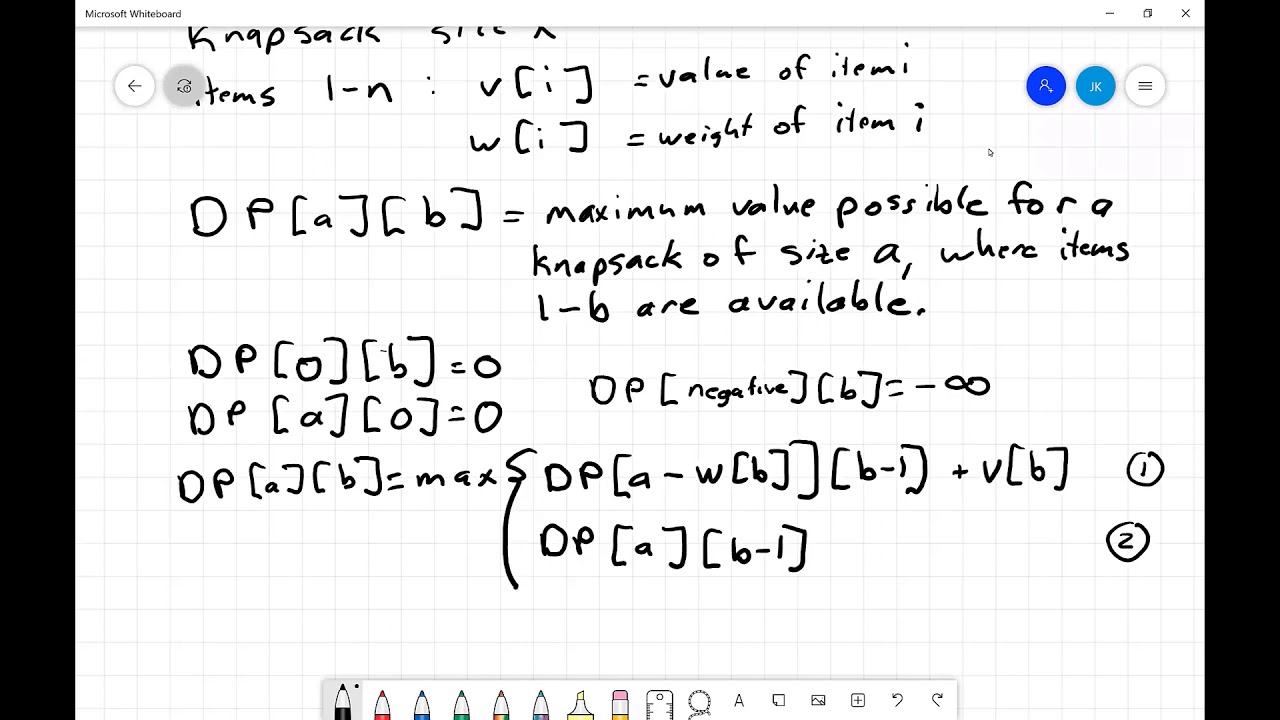 Microsoft Whiteboard
Knapsack size
items 1-n : v[i] = value of item i
JK
w[i] = weight of item i
DP[a][b] = maximum value possible for a
knapsack of size a, where items
1-b are available.
DP[0][b]=0
DP[negative][b]=-∞
DP[a][0]=0
DP[a][b]=max{ DP[a-w[b]][b-1] + v[b] ①
DP[a][b-1] ②
A